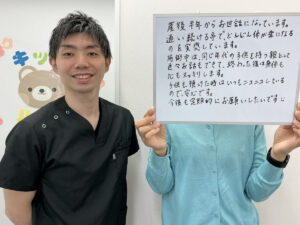 キッ
産後半年からお世話になっています。
通い続ける事でどんどん体が楽になる
のを実感しています。
施術中は、同じ年代の子供を持つ親として
色々お話もできて、終わった後は身体も
心もスッキリします。
子供も預けた時はいつもニコニコしている
ので、安心です。
今後も定期的にお願いしたいですし